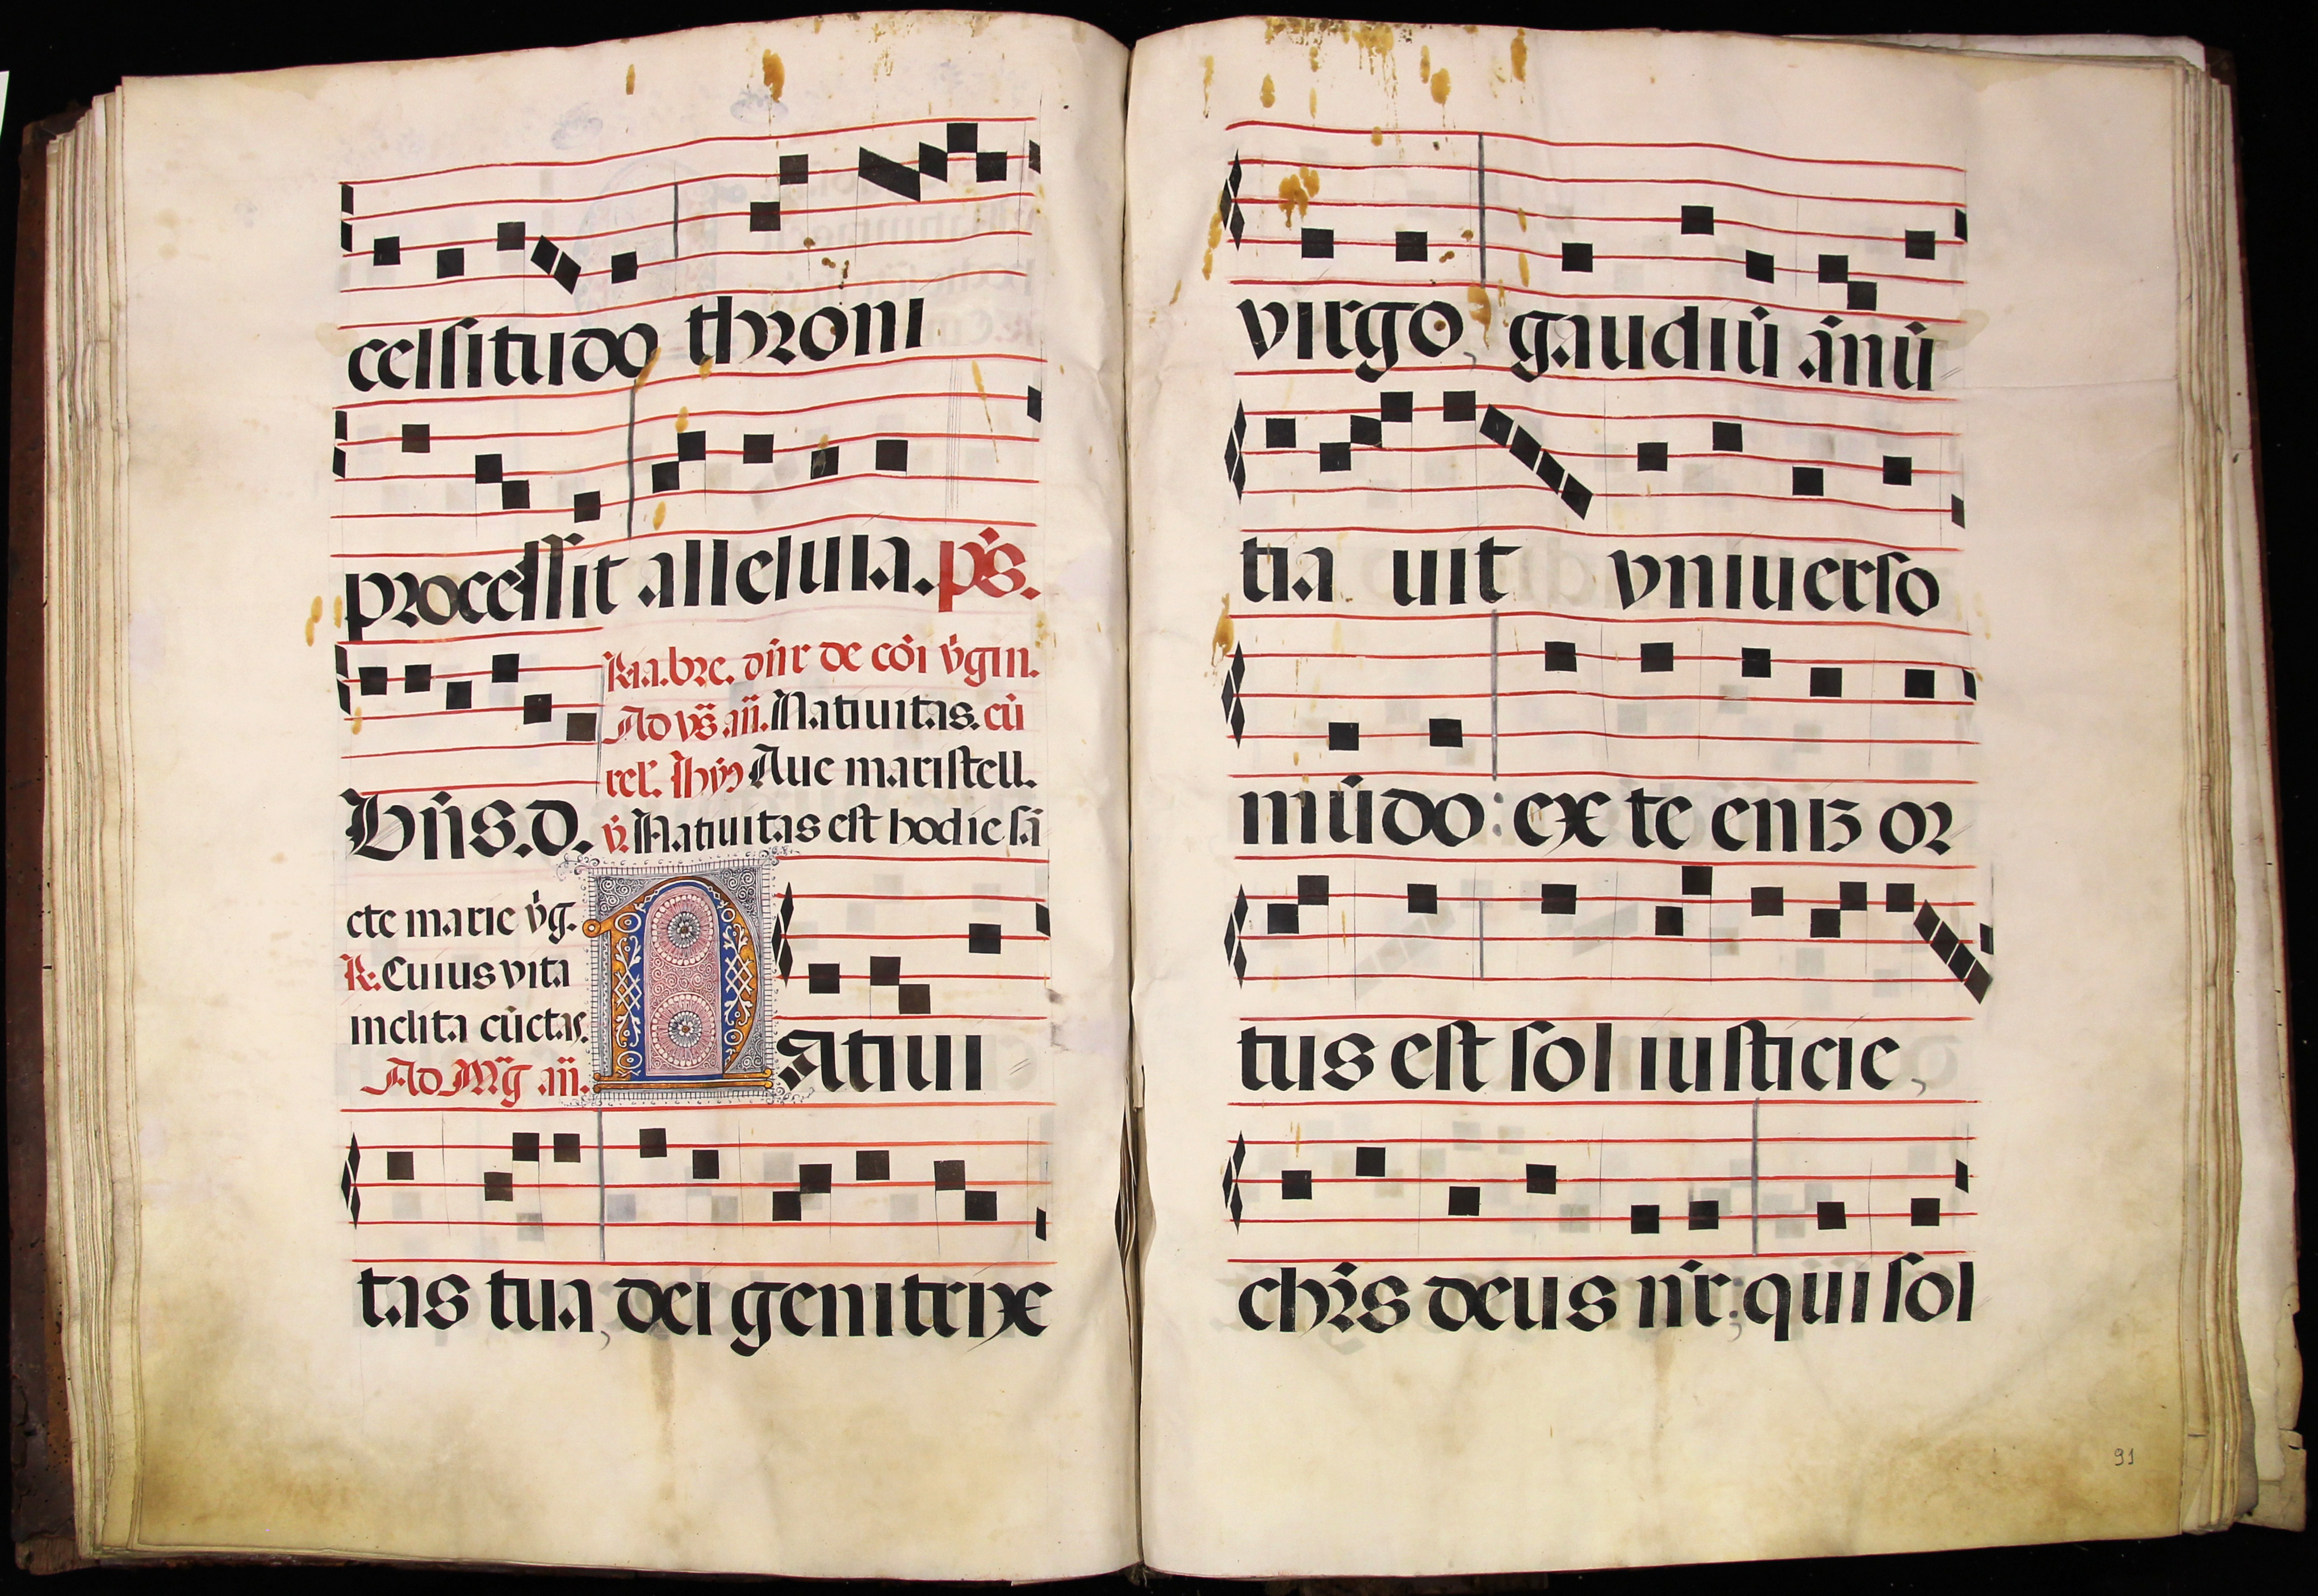 celsitudo throni
processit alleluia. ps.
Ria. bre. dnir de coi vgin.
Ad vs. iii. Natiuitas. cū
rel. Hym Aue maristell.
Bn̄s. d. v. Natiuitas est hodie sā
cte marie v̄g.
R. Cuius vita
inclita cūctas.
Ad Mg̅ .iii.
Natiui
tas tua, dei genitrix
virgo, gaudiū ānū
tia uit vniuerso
mūdo: ex te eniȝ or
tus est sol iusticie,
chr̄s deus nr̄: qui sol
91